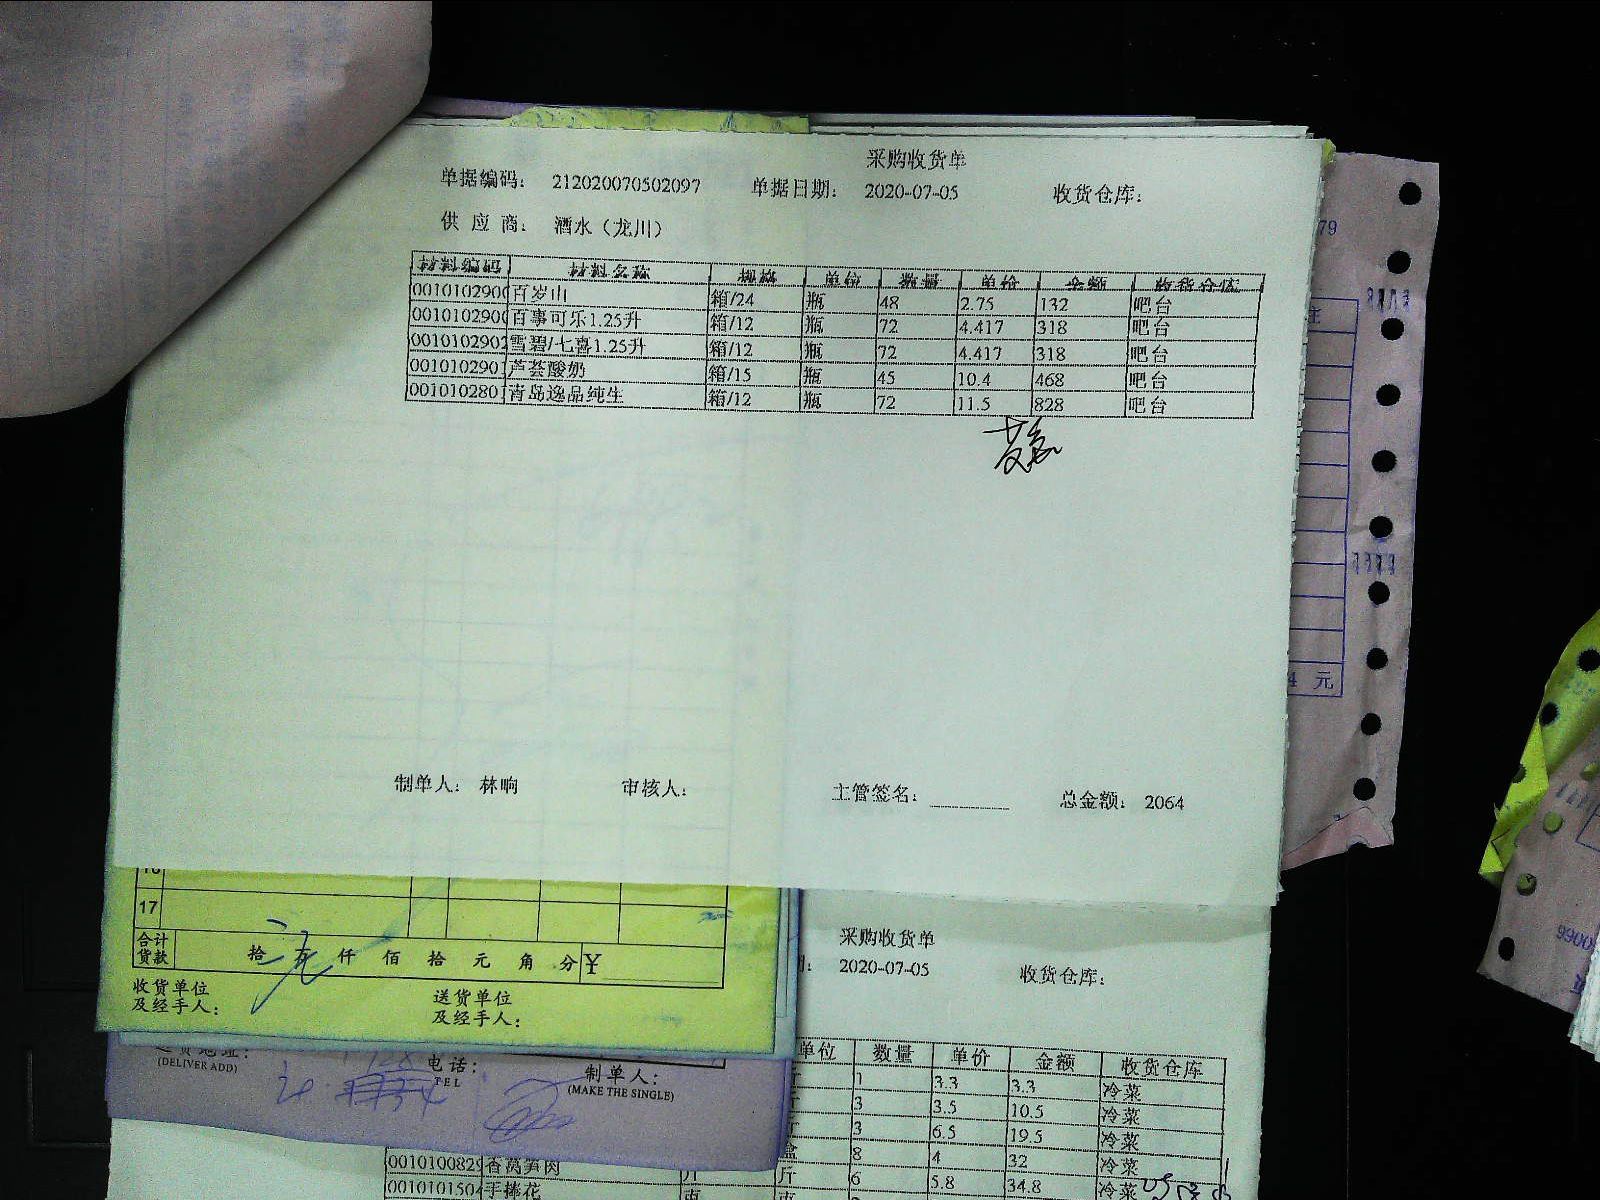 采购收货单
单据编码： 212020070502097 单据日期： 2020-07-05 收货仓库：
供 应 商： 酒水（龙川）
材料编码 材料名称 规格 单位 数量 单价 金额 收货仓库
0010102900 百岁山 箱/24 瓶 48 2.75 132 吧台
0010102900 百事可乐1.25升 箱/12 瓶 72 4.417 318 吧台
0010102902 雪碧/七喜1.25升 箱/12 瓶 72 4.417 318 吧台
001010290 芦荟酸奶 箱/15 瓶 45 10.4 468 吧台
001010280 青岛逸品纯生 箱/12 瓶 72 11.5 828 吧台
制单人： 林响 审核人： 主管签名： 总金额： 2064
79
4 元
16
17
合计货款 拾 万 仟 佰 拾 元 角 分 ¥
收货单位及经手人： 送货单位及经手人：
(DELIVER ADD) 电话： TEL 制单人： (MAKE THE SINGLE)
采购收货单
2020-07-05 收货仓库：
单位 数量 单价 金额 收货仓库
1 3.3 3.3 冷菜
3 3.5 10.5 冷菜
3 6.5 19.5 冷菜
0010100829 香莴笋肉 斤 盒 8 4 32 冷菜
0010101504 手捧花 斤 6 5.8 34.8 冷菜